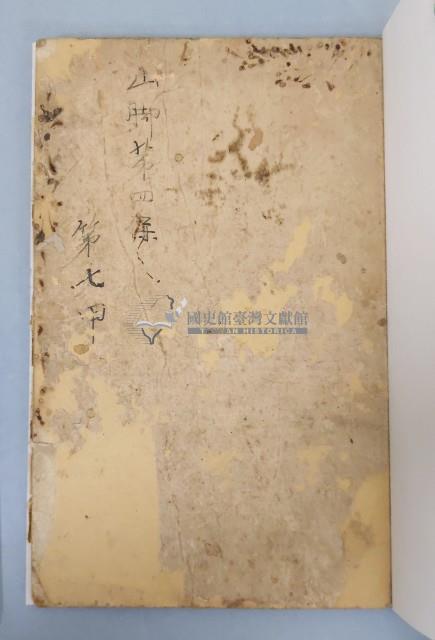 山脚第四保
第七甲
國史館臺灣文獻館
TAIWAN HISTORICA